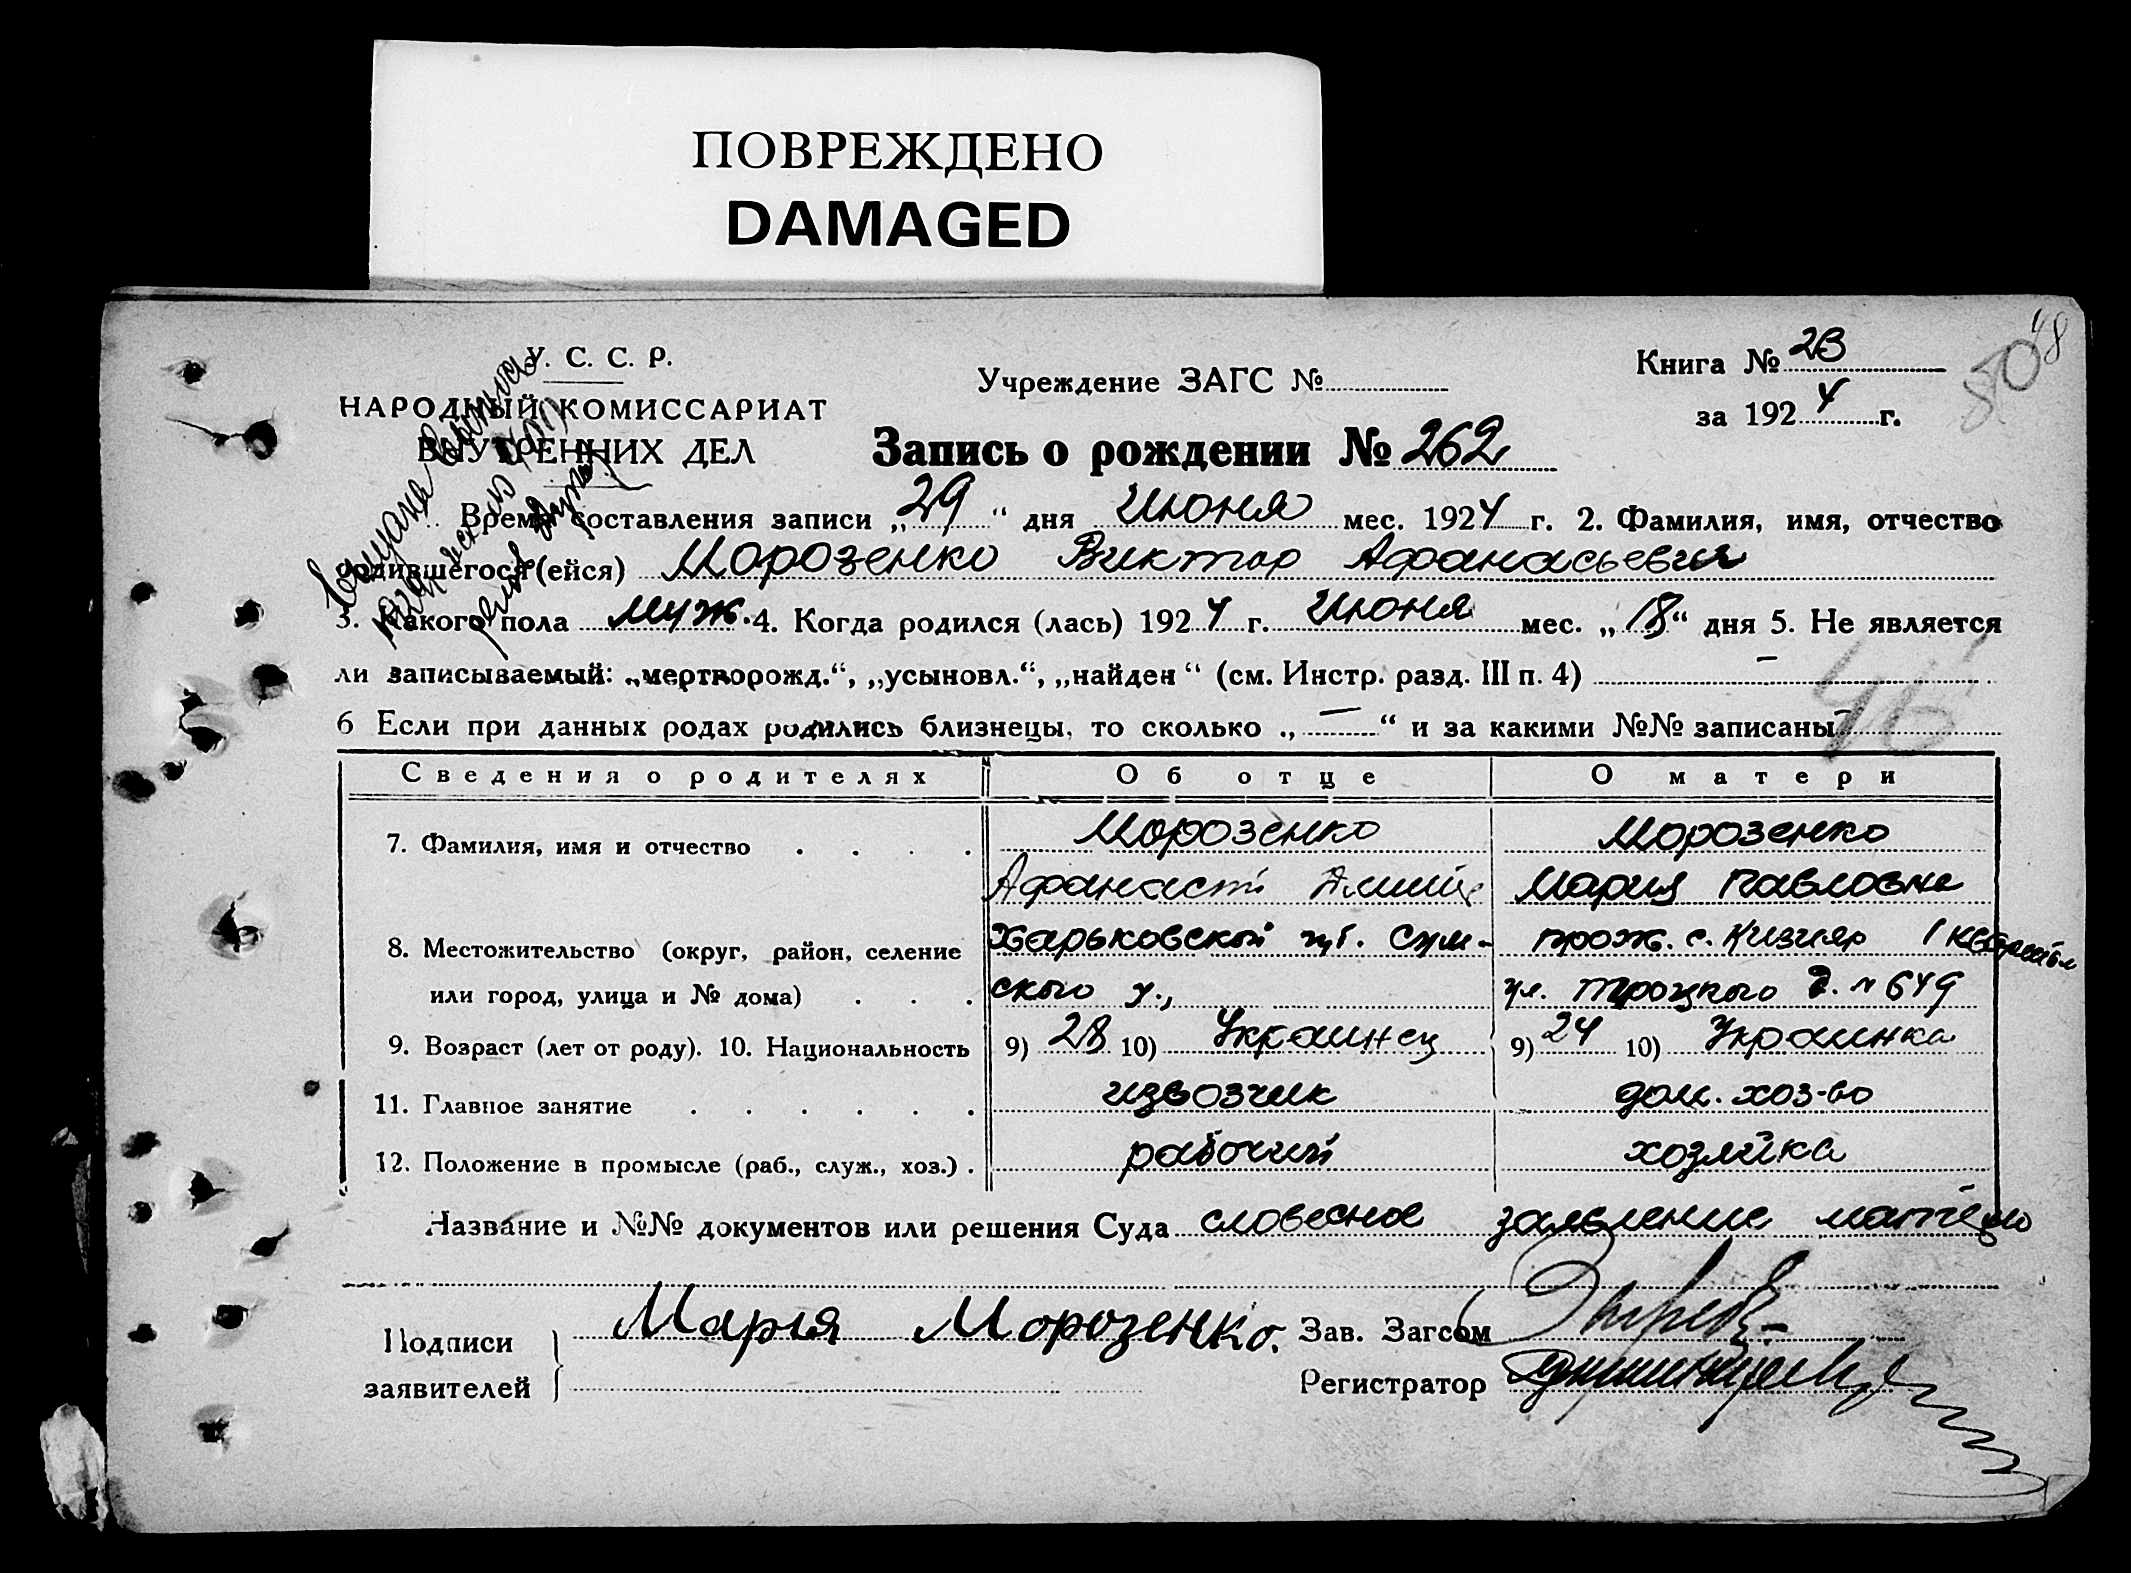 ПОВРЕЖДЕНО
DAMAGED
У. С. С. Р.
НАРОДНЫЙ КОМИССАРИАТ
ВНУТРЕННИХ ДЕЛ
Учреждение ЗАГС №
Книга № 2В
за 1924 г.
50
48
Запись о рождении № 262
Время составления записи „29“ дня Июня мес. 1924 г. 2. Фамилия, имя, отчество
родившегося (ейся) Морозенко Виктор Афанасьевич
3. Какого пола муж. 4. Когда родился (лась) 1924 г. Июня мес. „18“ дня 5. Не является
ли записываемый: „мертворожд.“, „усыновл.“, „найден“ (см. Инстр. разд. III п. 4) —
46
6 Если при данных родах родились близнецы, то сколько „—“ и за какими №№ записаны
Сведения о родителях Об отце О матери
7. Фамилия, имя и отчество Морозенко Морозенко
Афанасий Мария Павловна
8. Местожительство (округ, район, селение Харьковской губ. Сум- прож. с. Кизияр 1
или город, улица и № дома) ского у., ул. Троцкого д. № 649
9. Возраст (лет от роду). 10. Национальность 9) 28 10) Украинец 9) 24 10) Украинка
11. Главное занятие извозчик дом. хоз-во
12. Положение в промысле (раб., служ., хоз.) рабочий хозяйка
Название и №№ документов или решения Суда словесное заявление матери
Подписи заявителей Мария Морозенко. Зав. Загсом
Регистратор